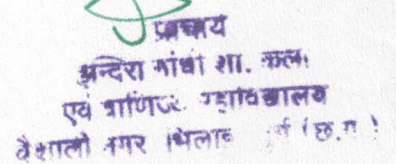 प्राचार्य
इन्दिरा गांधी शा. कला
एवं वाणिज्य महाविद्यालय
वैशाली नगर भिलाई (छ.ग.)